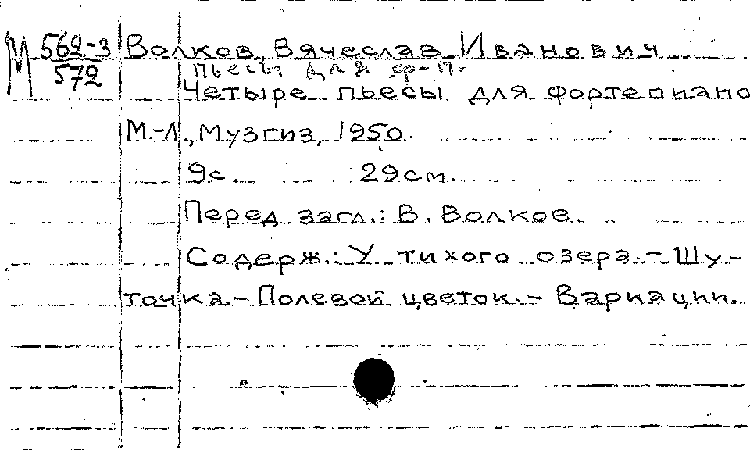 М 562-3 Волков, Вячеслав Иванович
572 Пьесы для ф-п.
Четыре пьесы для фортепиано
М.-Л., Музгиз, 1950.
9с. 29см.
Перед загл.: В. Волков.
Содерж.: У тихого озера.- Шу-
точка.- Полевой цветок.- Вариации.